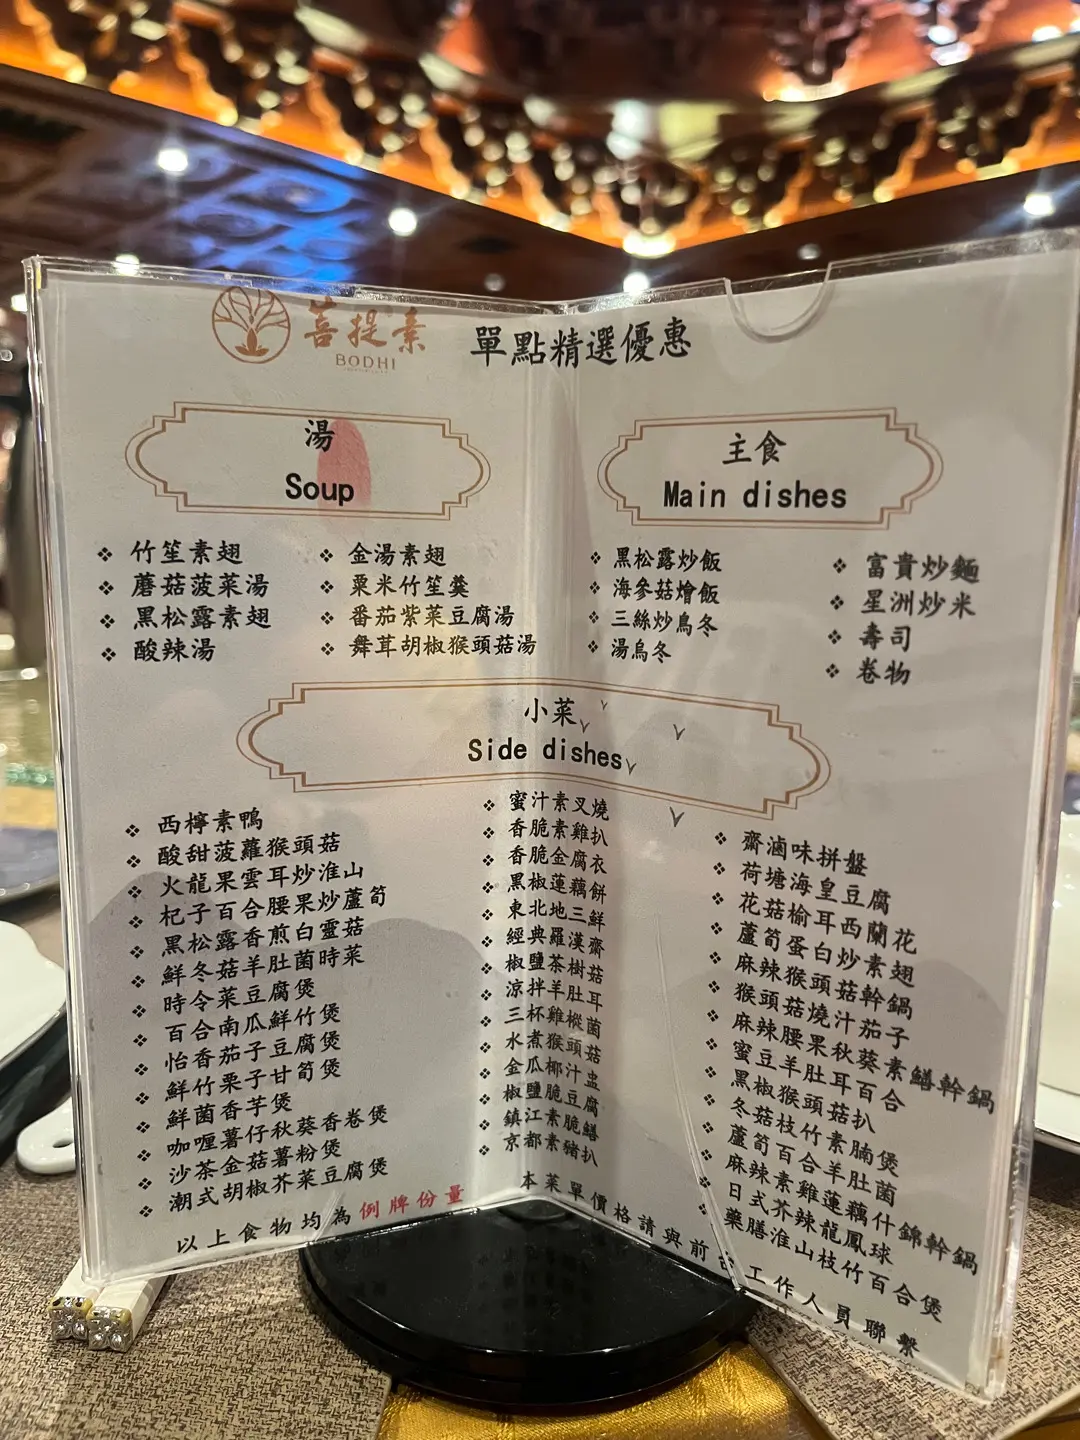 菩提素
BODHI
單點精選優惠
湯
Soup
竹笙素翅
蘑菇菠菜湯
黑松露素翅
酸辣湯
金湯素翅
粟米竹笙羹
番茄紫菜豆腐湯
舞茸胡椒猴頭菇湯
主食
Main dishes
黑松露炒飯
海參菇燴飯
三絲炒烏冬
湯烏冬
富貴炒麵
星洲炒米
壽司
卷物
小菜
Side dishes
西檸素鴨
酸甜菠蘿猴頭菇
火龍果雲耳炒淮山
杞子百合腰果炒蘆筍
黑松露香煎白靈菇
鮮冬菇羊肚菌時菜
時令菜豆腐煲
百合南瓜鮮竹煲
怡香茄子豆腐煲
鮮竹栗子甘筍煲
鮮菌香芋煲
咖喱薯仔秋葵香卷煲
沙茶金菇薯粉煲
潮式胡椒芥菜豆腐煲
蜜汁素叉燒
香脆素雞扒
香脆金腐衣
黑椒蓮藕餅
東北地三鮮
經典羅漢齋
椒鹽茶樹菇
涼拌羊肚耳
三杯雞樅菌
水煮猴頭菇
金瓜椰汁盅
椒鹽脆豆腐
鎮江素脆鱔
京都素豬扒
齋滷味拼盤
荷塘海皇豆腐
花菇榆耳西蘭花
蘆筍蛋白炒素翅
麻辣猴頭菇幹鍋
猴頭菇燒汁茄子
麻辣腰果秋葵素鱔幹鍋
蜜豆羊肚耳百合
黑椒猴頭菇扒
冬菇枝竹素腩煲
蘆筍百合羊肚菌
麻辣素雞蓮藕什錦幹鍋
日式芥辣龍鳳球
藥膳淮山枝竹百合煲
以上食物均為例牌份量
本菜單價格請與前台工作人員聯繫